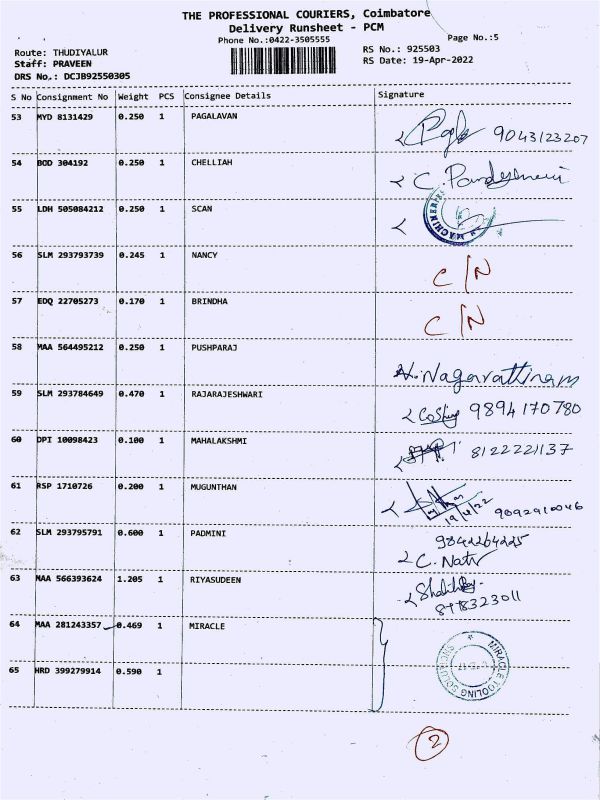 THE PROFESSIONAL COURIERS, Coimbatore
Delivery Runsheet - PCM
Phone No.:0422-3505555
Page No.:5
Route: THUDIYALUR
Staff: PRAVEEN
DRS No.: DCJB92550305
RS No.: 925503
RS Date: 19-Apr-2022
S No Consignment No Weight PCS Consignee Details Signature
53 MYD 8131429 0.250 1 PAGALAVAN 9043123207
54 BOD 304192 0.250 1 CHELLIAH
55 LDH 505084212 0.250 1 SCAN
56 SLM 293793739 0.245 1 NANCY C/N
57 EDQ 22705273 0.170 1 BRINDHA C/N
58 MAA 564495212 0.250 1 PUSHPARAJ N.Nagarattinam
59 SLM 293784649 0.470 1 RAJARAJESHWARI 9894170780
60 DPI 10098423 0.100 1 MAHALAKSHMI 8122221137
61 RSP 1710726 0.200 1 MUGUNTHAN 19/4/22 9092910046
62 SLM 293795791 0.600 1 PADMINI 9842264225
63 MAA 566393624 1.205 1 RIYASUDEEN
64 MAA 281243357 0.469 1 MIRACLE
65 HRD 399279914 0.590 1
MIRACLE TOOLING SOLUTIONS
2